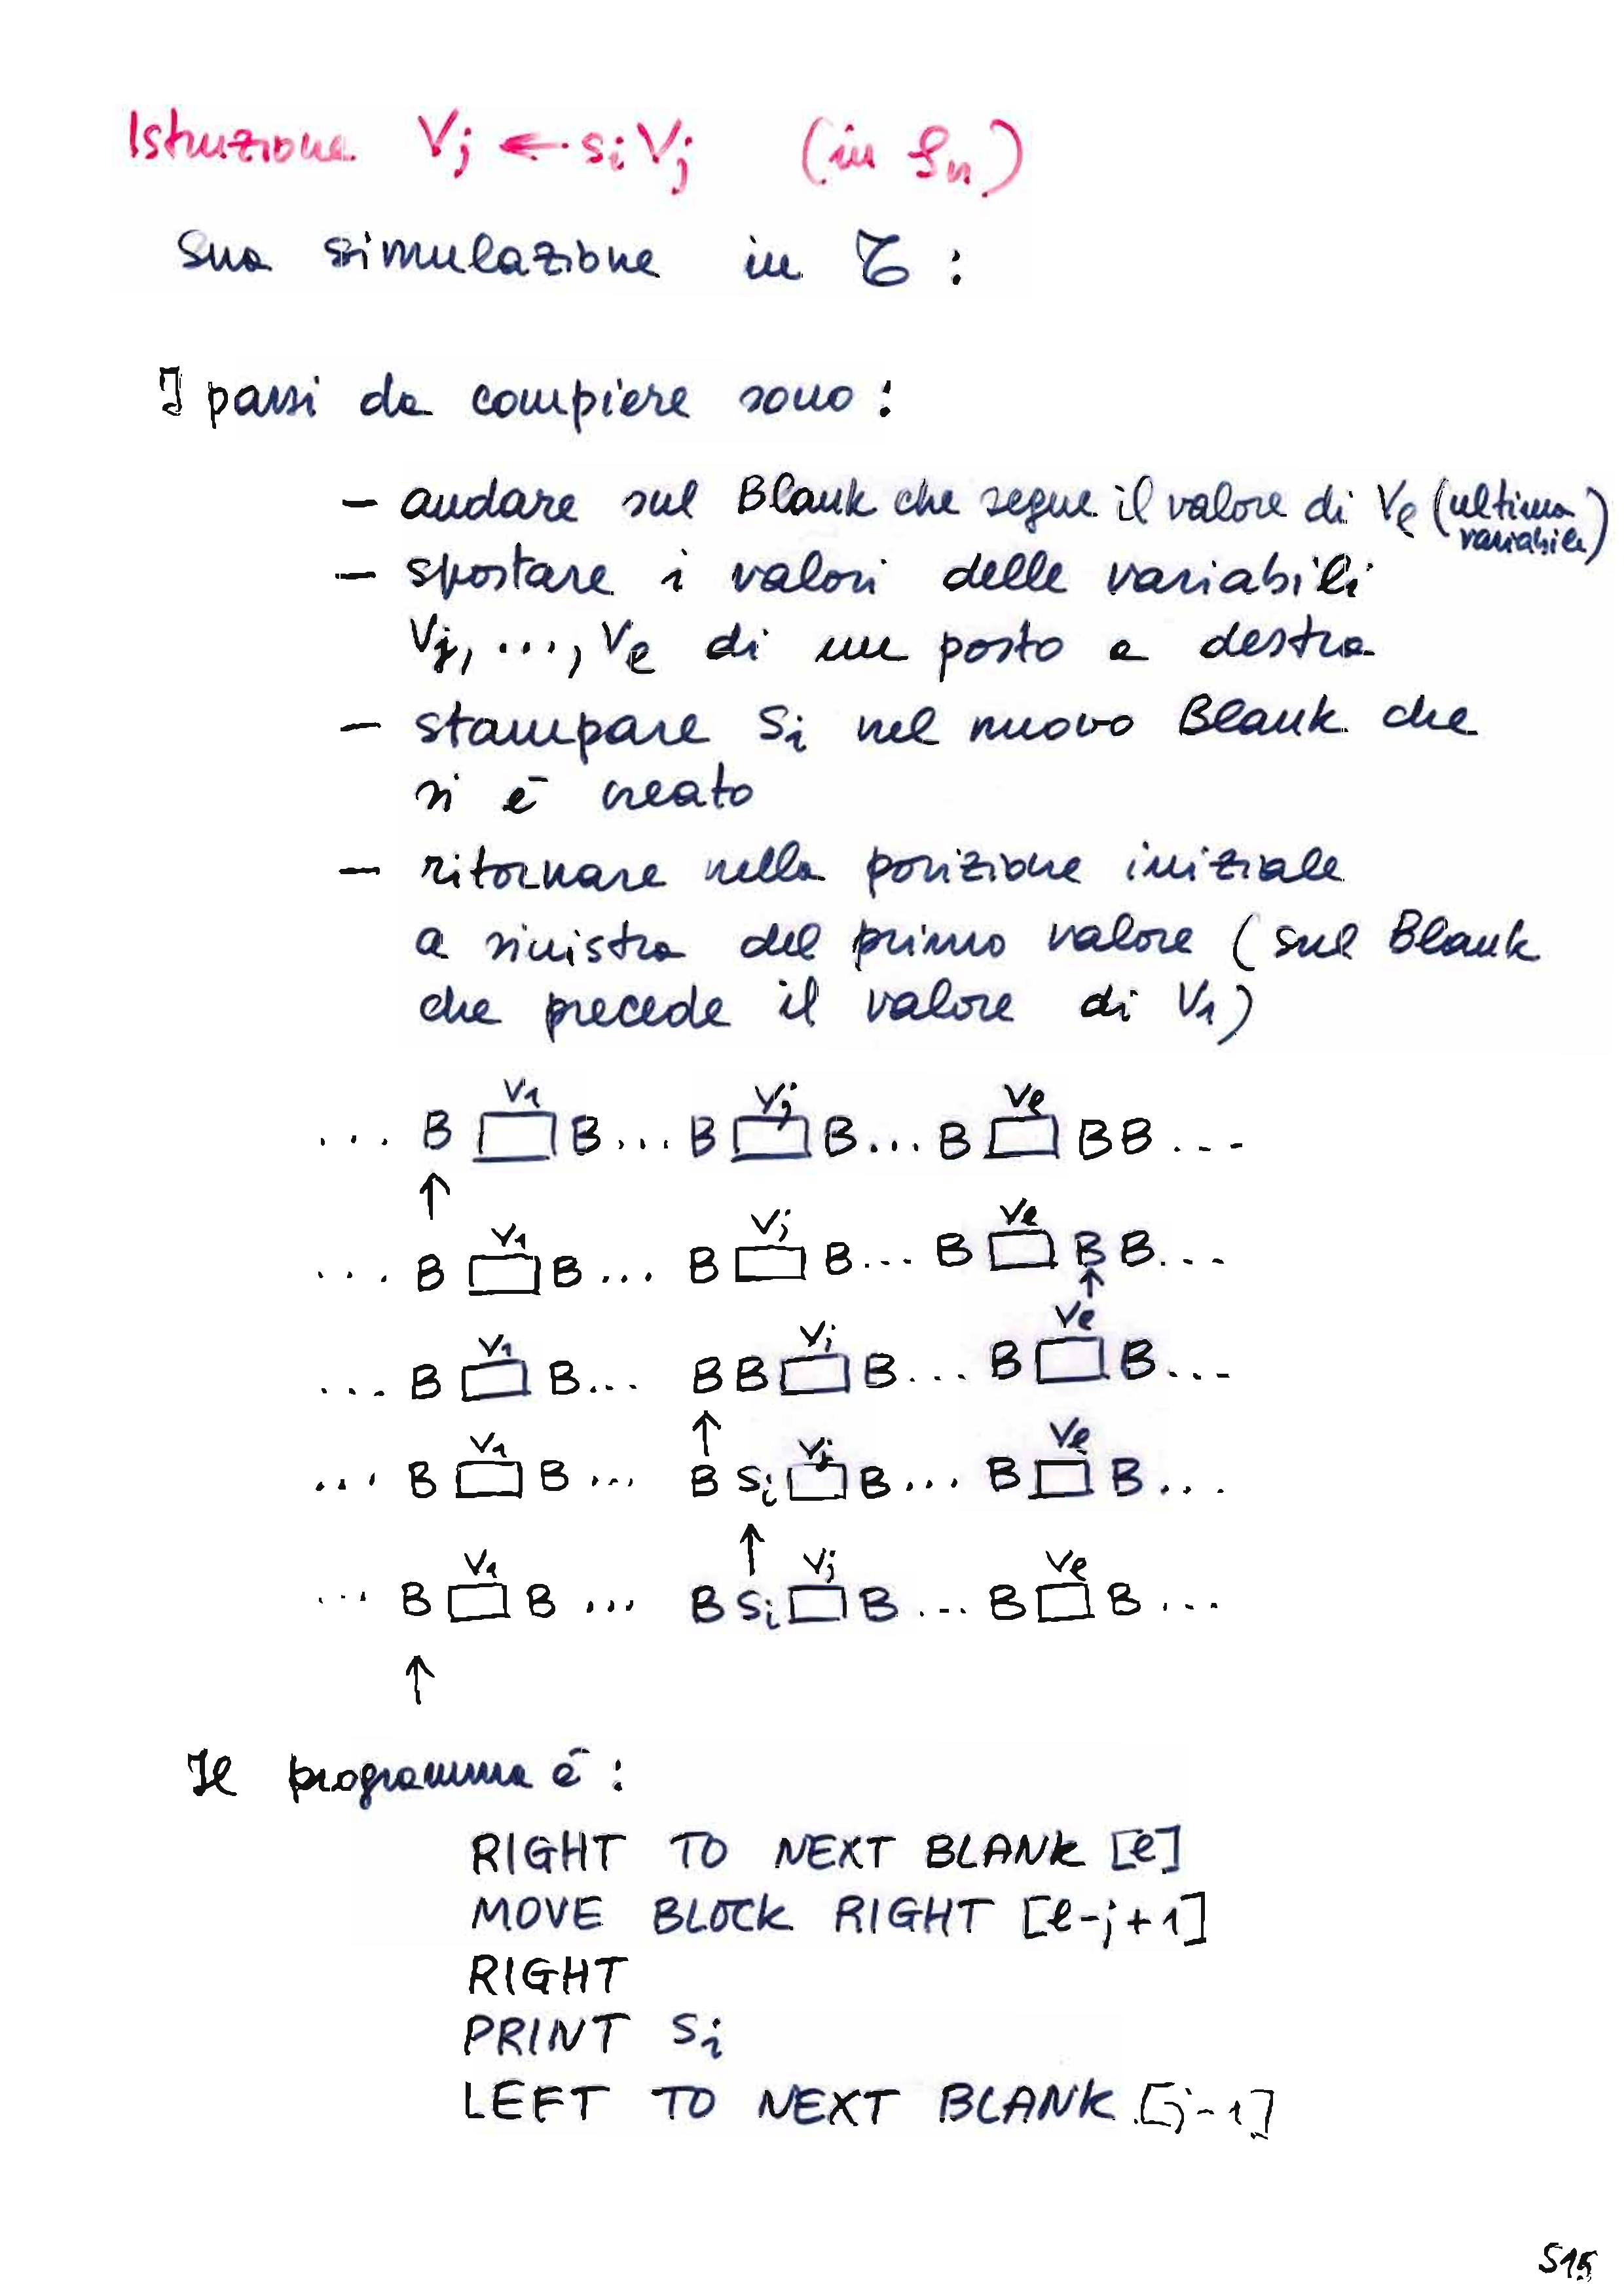 Istruzione Vj ← si Vj (in 𝒮n)
Sua simulazione in 𝒯 :
I passi da compiere sono :
– andare sul Blank che segue il valore di Vℓ (ultima variabile)
– spostare i valori delle variabili
Vj, ..., Vℓ di un posto a destra
– stampare Si nel nuovo Blank che
si è creato
– ritornare nella posizione iniziale
a sinistra del primo valore (sul Blank
che precede il valore di V1)
V1 Vj Vℓ
... B B ... B B ... B BB ...
↑
V1 Vj Vℓ
... B B ... B B ... B B B ...
↑
V1 Vj Vℓ
... B B ... B B B ... B B ...
↑
V1 Vj Vℓ
... B B ... B Si B ... B B ...
↑
V1 Vj Vℓ
... B B ... B Si B ... B B ...
↑
Il programma è :
RIGHT TO NEXT BLANK [ℓ]
MOVE BLOCK RIGHT [ℓ-j+1]
RIGHT
PRINT Si
LEFT TO NEXT BLANK [j-1]
S15